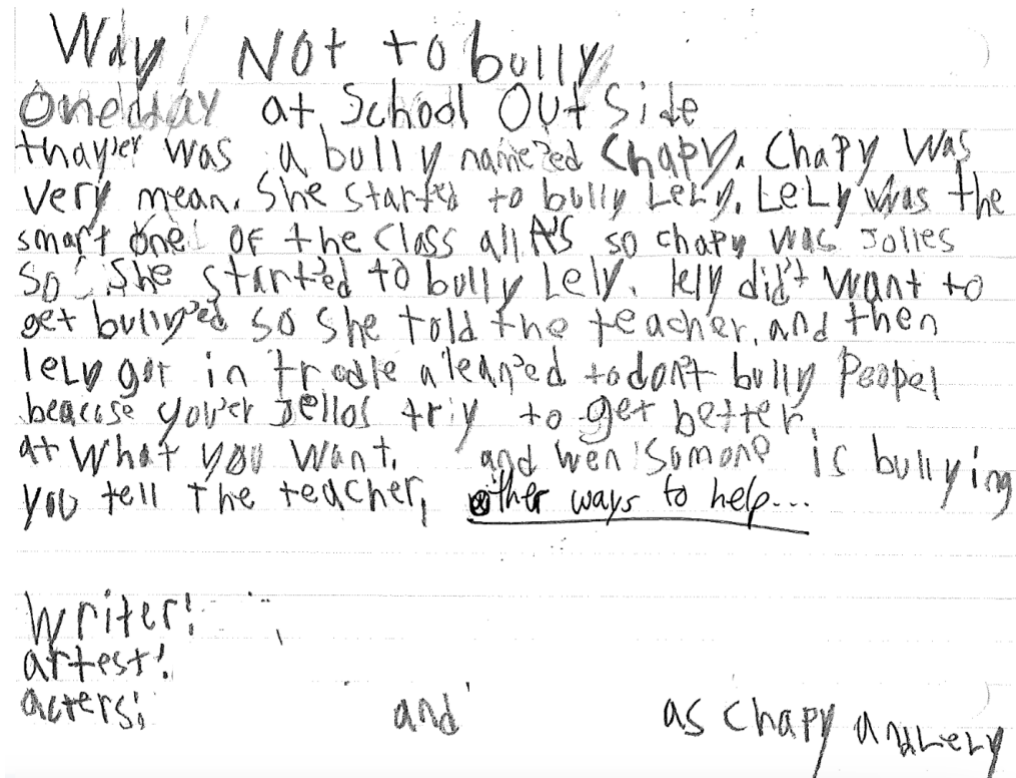 Way Not to bully
Onedday at School Out Side
thayer was a bully nameed Chapy. Chapy Was
very mean. She started to bully LeLy. LeLy was the
smart one of the class all A's so chapy was Jolles
So She started to bully Lely. lely did't want to
get bullyed so she told the teacher. and then
leLy got in trodle a leaned to don't bully Peopel
beacise you'er Jellos triy to get better.
at What you want. and wen Somone is bullying
you tell The teacher, other ways to help...
Writer!
artest!
acters; and as chapy and LeLy